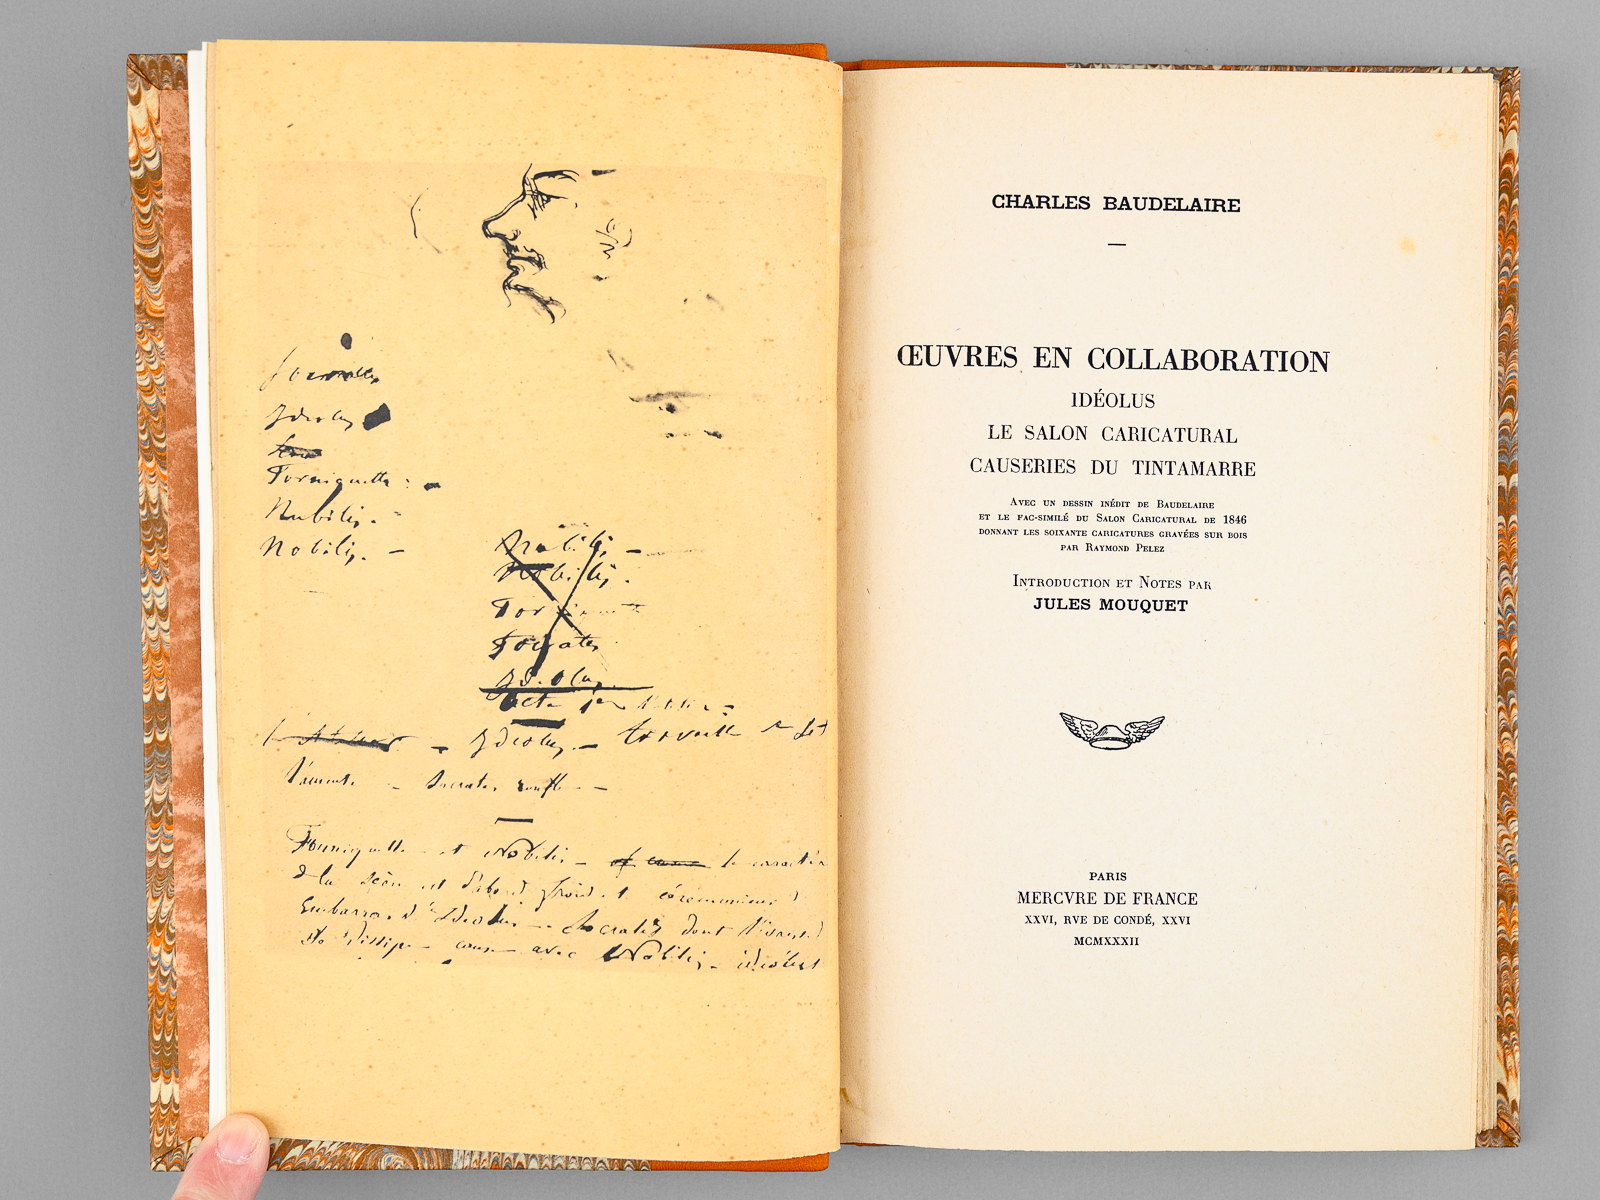 Idéolus
Forniquette :
Nubilis. -
Nobilis. -
Nubilis -
Nobilis.
Forniquette
Socrates
Idéolus.
Acte 1er
- Idéolus. - travaille
- Socrates ronfle -
Forniquette et Nobilis - le caractère
de la scène est d'abord froid et cérémonieux
Embarras d'Idéolus - Socrates dont l'ivresse
dissipe - cause avec Nobilis -
CHARLES BAUDELAIRE
—
ŒUVRES EN COLLABORATION
IDÉOLUS
LE SALON CARICATURAL
CAUSERIES DU TINTAMARRE
AVEC UN DESSIN INÉDIT DE BAUDELAIRE
ET LE FAC-SIMILÉ DU SALON CARICATURAL DE 1846
DONNANT LES SOIXANTE CARICATURES GRAVÉES SUR BOIS
PAR RAYMOND PELEZ
INTRODUCTION ET NOTES PAR
JULES MOUQUET
PARIS
MERCVRE DE FRANCE
XXVI, RVE DE CONDÉ, XXVI
MCMXXXII